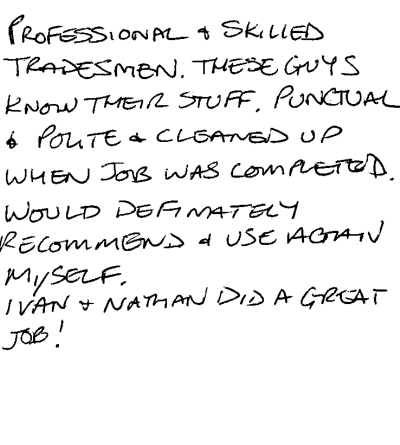 PROFESSIONAL & SKILLED
TRADESMEN. THESE GUYS
KNOW THEIR STUFF. PUNCTUAL
& POLITE & CLEANED UP
WHEN JOB WAS COMPLETED.
WOULD DEFINATELY
RECOMMEND & USE AGAIN
MYSELF.
IVAN & NATHAN DID A GREAT
JOB!